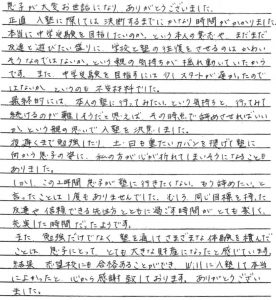 息子が大変お世話になり、ありがとうございました。
正直、入塾に際しては決断するまでにかなり時間がかかりました。
本当に中学受験を目指したいのか、という本人の意志や、まだまだ
友達と遊びたい盛りに、学校と塾の往復をさせるのはかわい
そうなのではないか、という親の気持ちが揺れ動いていたから
です。また、中学受験を目指すには少しスタートが遅かったので
はないか、というのも不安材料でした。
最終的には、本人の塾に行ってみたい、という気持ちと、行ってみて
続けるのが難しそうだと思えば、その時点で辞めさせればいい
か、という親の思いで入塾を決意しました。
夜遅くまで勉強したり、土・日も重たいカバンを提げて塾に
向かう息子の姿に、私の方が心が折れてしまいそうになることも
ありました。
しかし、この2年間、息子が塾に行きたくない、もう辞めたい、と
言ったことは1度もありませんでした。むしろ、同じ目標を持った
友達や信頼できる先生方とともに過ごす時間がとても楽しく、
充実した時間だったようです。
また、勉強だけでなく、塾を通してさまざまな体験を積んだ
ことは、息子にとって、とても大きな財産になったと感じています。
結果、志望校にも合格することができ、Willに入塾して本当
によかったと、心から感謝致しております。ありがとうござい
ました。